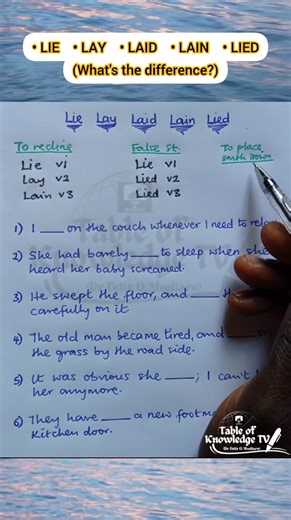 • LIE • LAY • LAID • LAIN • LIED
(What's the difference?)
Lie Lay Laid Lain Lied
To recline False st. To place
smth down
Lie v1 Lie v1
Lay v2 Lied v2
Lain v3 Lied v3
1) I ___ on the couch whenever I need to
2) She had barely ___ to sleep when she
heard her baby screamed.
3) He swept the floor, and ___
carefully on it.
4) The old man became tired, and ___
the grass by the road side.
5) It was obvious she ___; I can't
her anymore.
6) They have ___ a new
kitchen door.
Table of
Knowledge TV
Table of
Knowledge TV